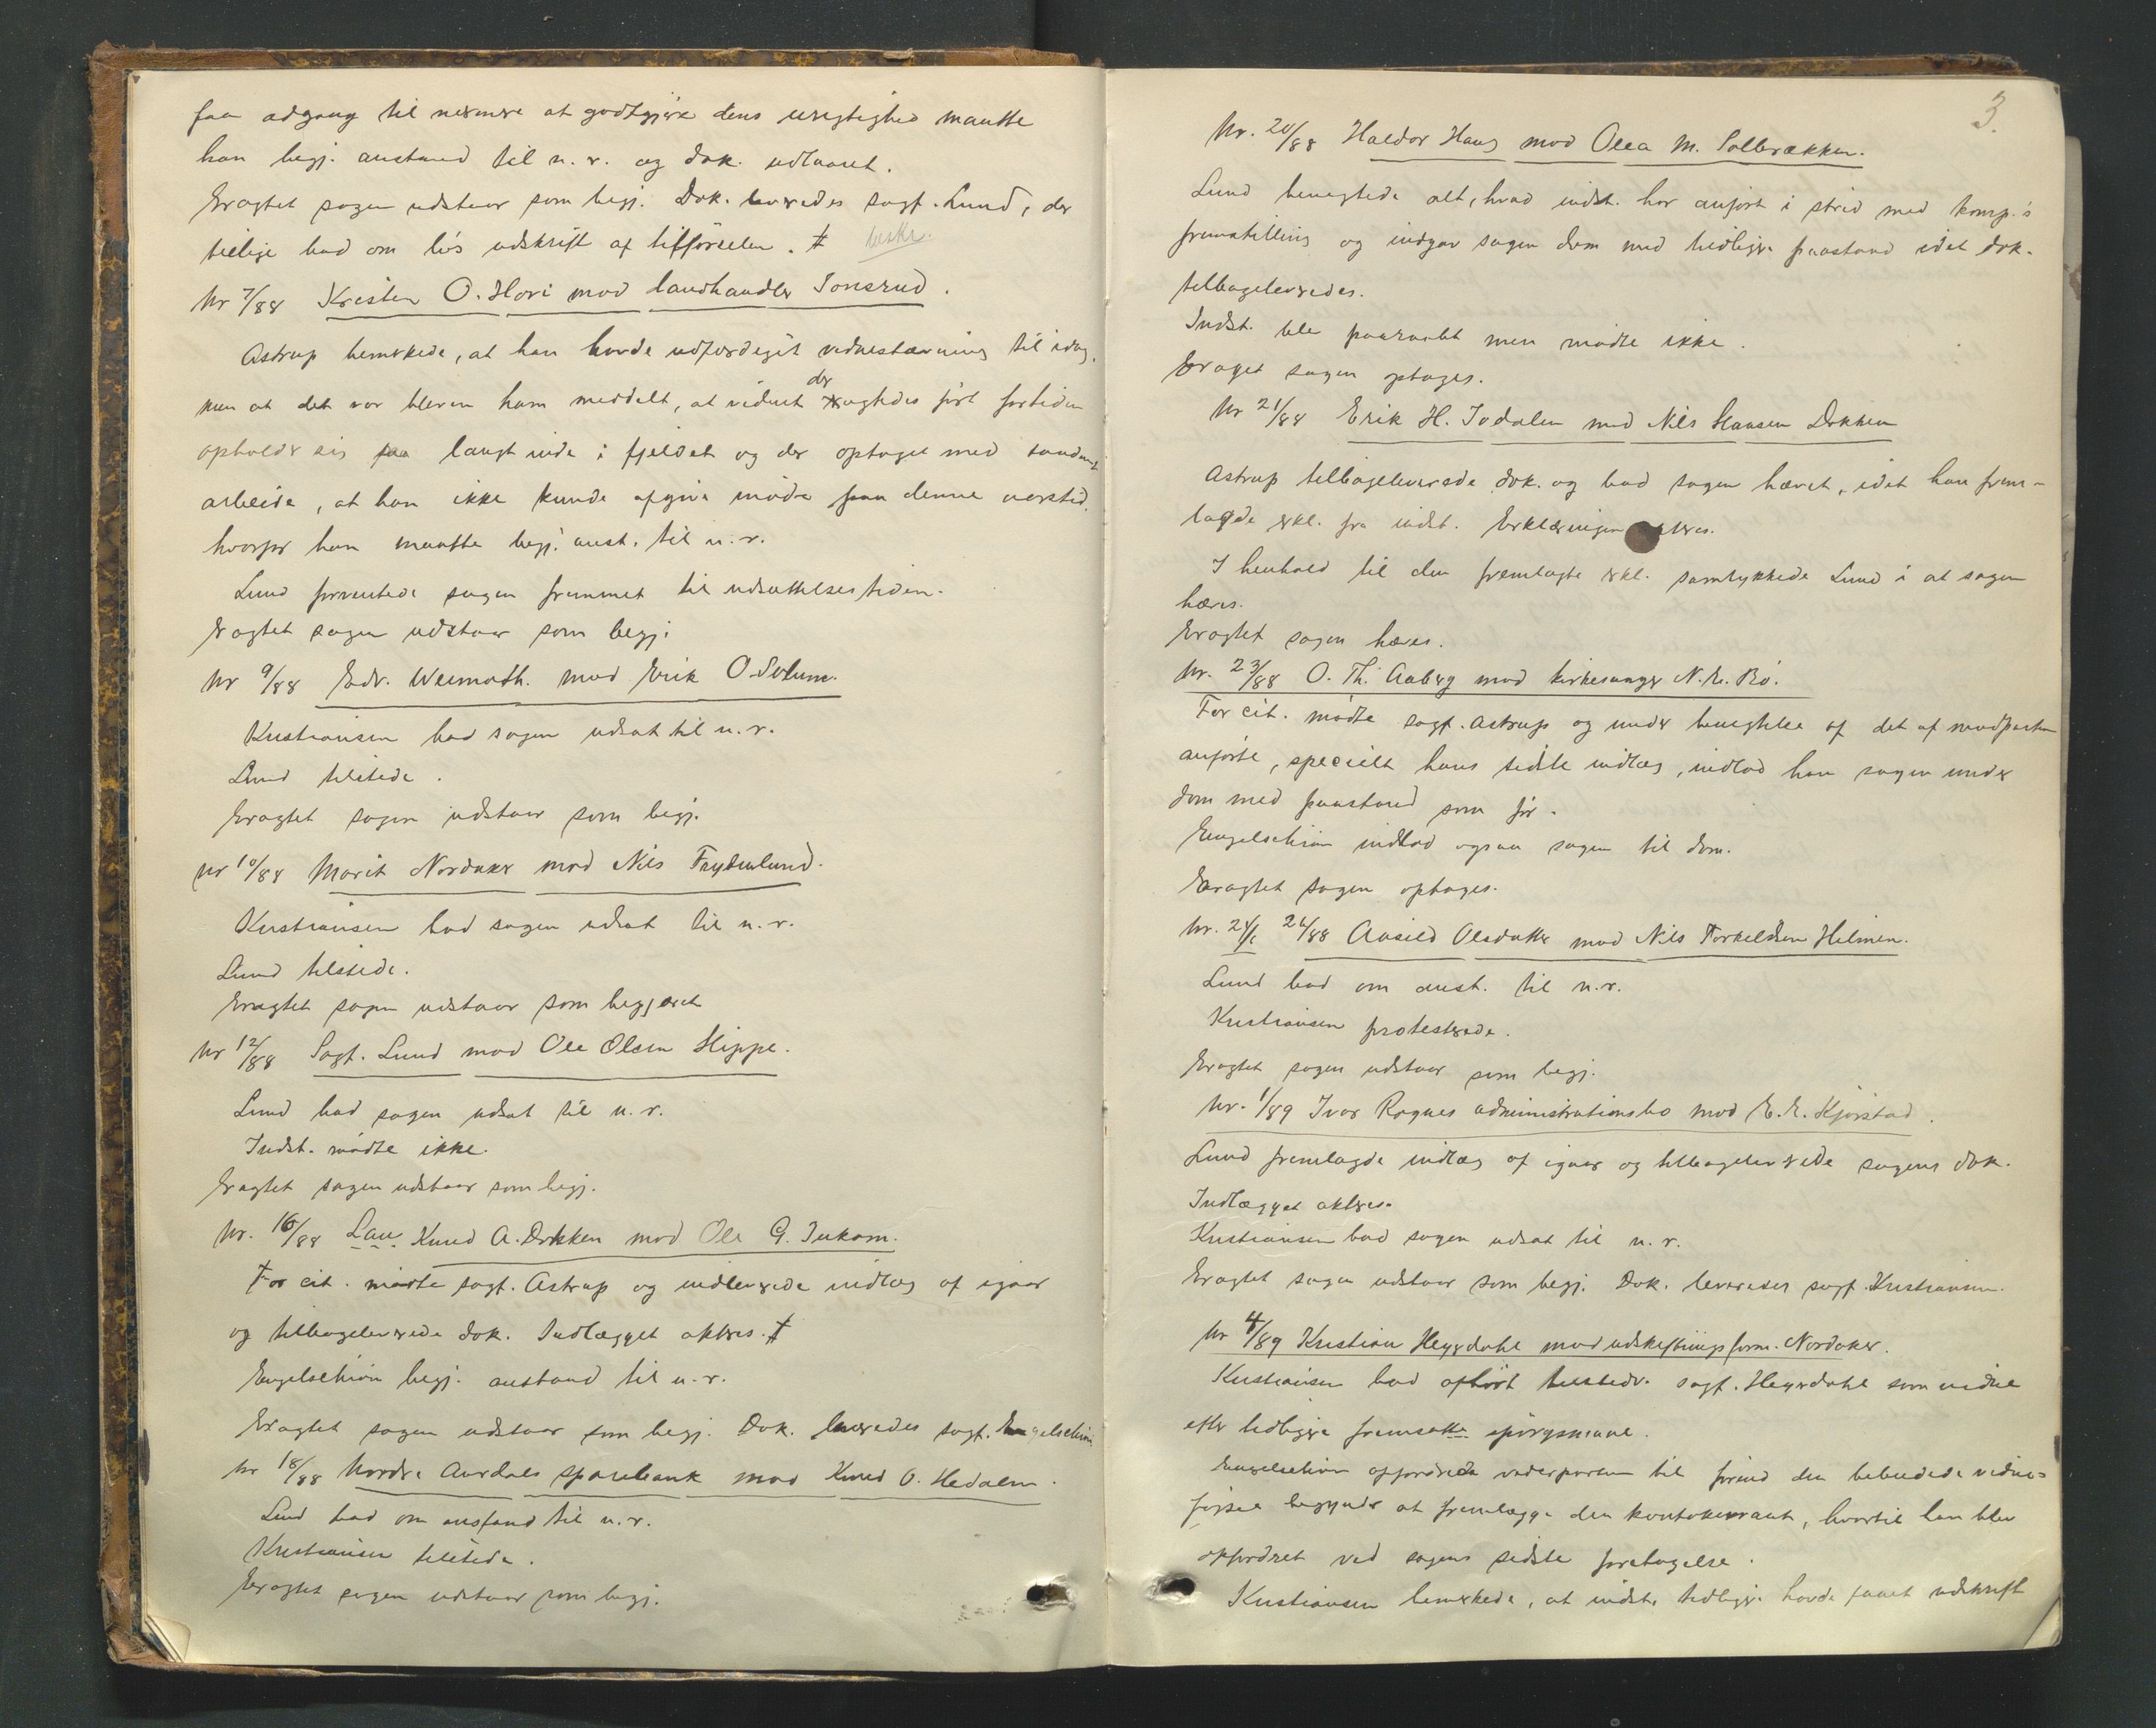 faa adgang til nærmere at godtgjøre dens urigtighed maatte
han begj. anstand til n. r. og dok. udlaant.
Eragtet sagen udstaar som begj. Dok. leveredes sagf. Lund, der
tillige bad om løs udskrift af tilførselen. ‡ beskr.
Nr 7/88 Kristen O. Hovi mod landhandler Tonsrud.
Astrup bemærkede, at han havde udfærdiget vidnestævning til idag,
men at det var bleven ham meddelt, at vidnet der agtedes ført fortiden
opholder sig langt inde i fjeldet og der optaget med saadant
arbeide, at han ikke kunde afgive møde paa denne aarstid.
hvorfor han maatte begj. anst. til n. r.
Lund forventede sagen fremmet til udsættelsestiden.
Eragtet sagen udstaar som begj.
Nr 9/88 Edv. Weimodth. mod Erik O. Solum.
Kristiansen bad sagen udsat til n. r.
Lund tilstede.
Eragtet sagen udstaar som begj.
Nr 10/88 Marit Nordaker mod Nils Frydenlund.
Kristiansen bad sagen udsat til n. r.
Lund tilstede.
Eragtet sagen udstaar som begjæret
Nr 12/88 Sagf. Lund mod Ole Olsen Hippe.
Lund bad sagen udsat til n. r.
Indst. mødte ikke.
Eragtet sagen udstaar som begj.
Nr. 16/88 Knud A. Dokken mod Ole G. Jukam.
For cit. mødte sagf. Astrup og indleverede indlæg af igaar
og tilbageleverede dok. Indlægget akteres. ‡
Engelschiøn begj. anstand til n. r.
Eragtet sagen udstaar som begj. Dok. leveredes sagf. Engelschiøn
Nr 18/88 Nordre Aurdals sparebank mod Knud O. Hedalen.
Lund bad om anstand til n. r.
Kristiansen tilstede.
Eragtet sagen udstaar som begj.
3.
Nr. 20/88 Haldor Haug mod Olea M. Solbrækken.
Lund benegtede alt, hvad indst. har anført i strid med komp.'s
fremstilling og indgav sagen dom med tidligere paastand idet dok.
tilbageleveredes.
Indst. blev paaraabt men mødte ikke.
Eraget sagen optages.
Nr 21/88 Erik H. Jodalen mod Nils Hansen Dokken
Astrup tilbageleverede dok. og bad sagen hævet, idet han frem-
lagde erkl. fra indst. Erklæringen akteres.
I henhold til den fremlagte erkl. samtykkede Lund i at sagen
hæves.
Eragtet sagen hæves.
Nr. 23/88 O. Th. Aaberg mod kirkesanger N. E. Bø.
For cit. mødte sagf. Astrup og under benegtelse af det af modparten
anførte, specielt hans sidste indlæg, indlod han sagen under
dom med paastand som før.
Engelschiøn indlod ogsaa sagen til dom.
Eragtet sagen optages.
Nr. 26/88 Aasild Olsdatter mod Nils Torkeldsen Helmen.
Lund bad om anst. til n. r.
Kristiansen protesterede.
Eragtet sagen udstaar som begj.
Nr. 1/89 Ivar Rognes administrationsbo mod E. E. Kjørstad.
Lund fremlagde indlæg af igaar og tilbageleverede sagens dok.
Indlægget akteres.
Kristiansen bad sagen udsat til n. r.
Eragtet sagen udstaar som begj. Dok. leveredes sagf. Kristiansen.
Nr 4/89 Kristian Heyerdahl mod udskiftningsform. Nordaker.
Kristiansen bad afhørt tilstedv. sagf. Heyerdahl som vidne
efter tidligere fremsatte spørgsmaal.
Engelschiøn opfordrede vederparten til førend den bebudede vidne-
førsel begynder at fremlægge den kontokurant, hvortil han blev
opfordret ved sagens sidste foretagelse.
Kristiansen bemærkede, at indst. tidligere havde faaet udskrift